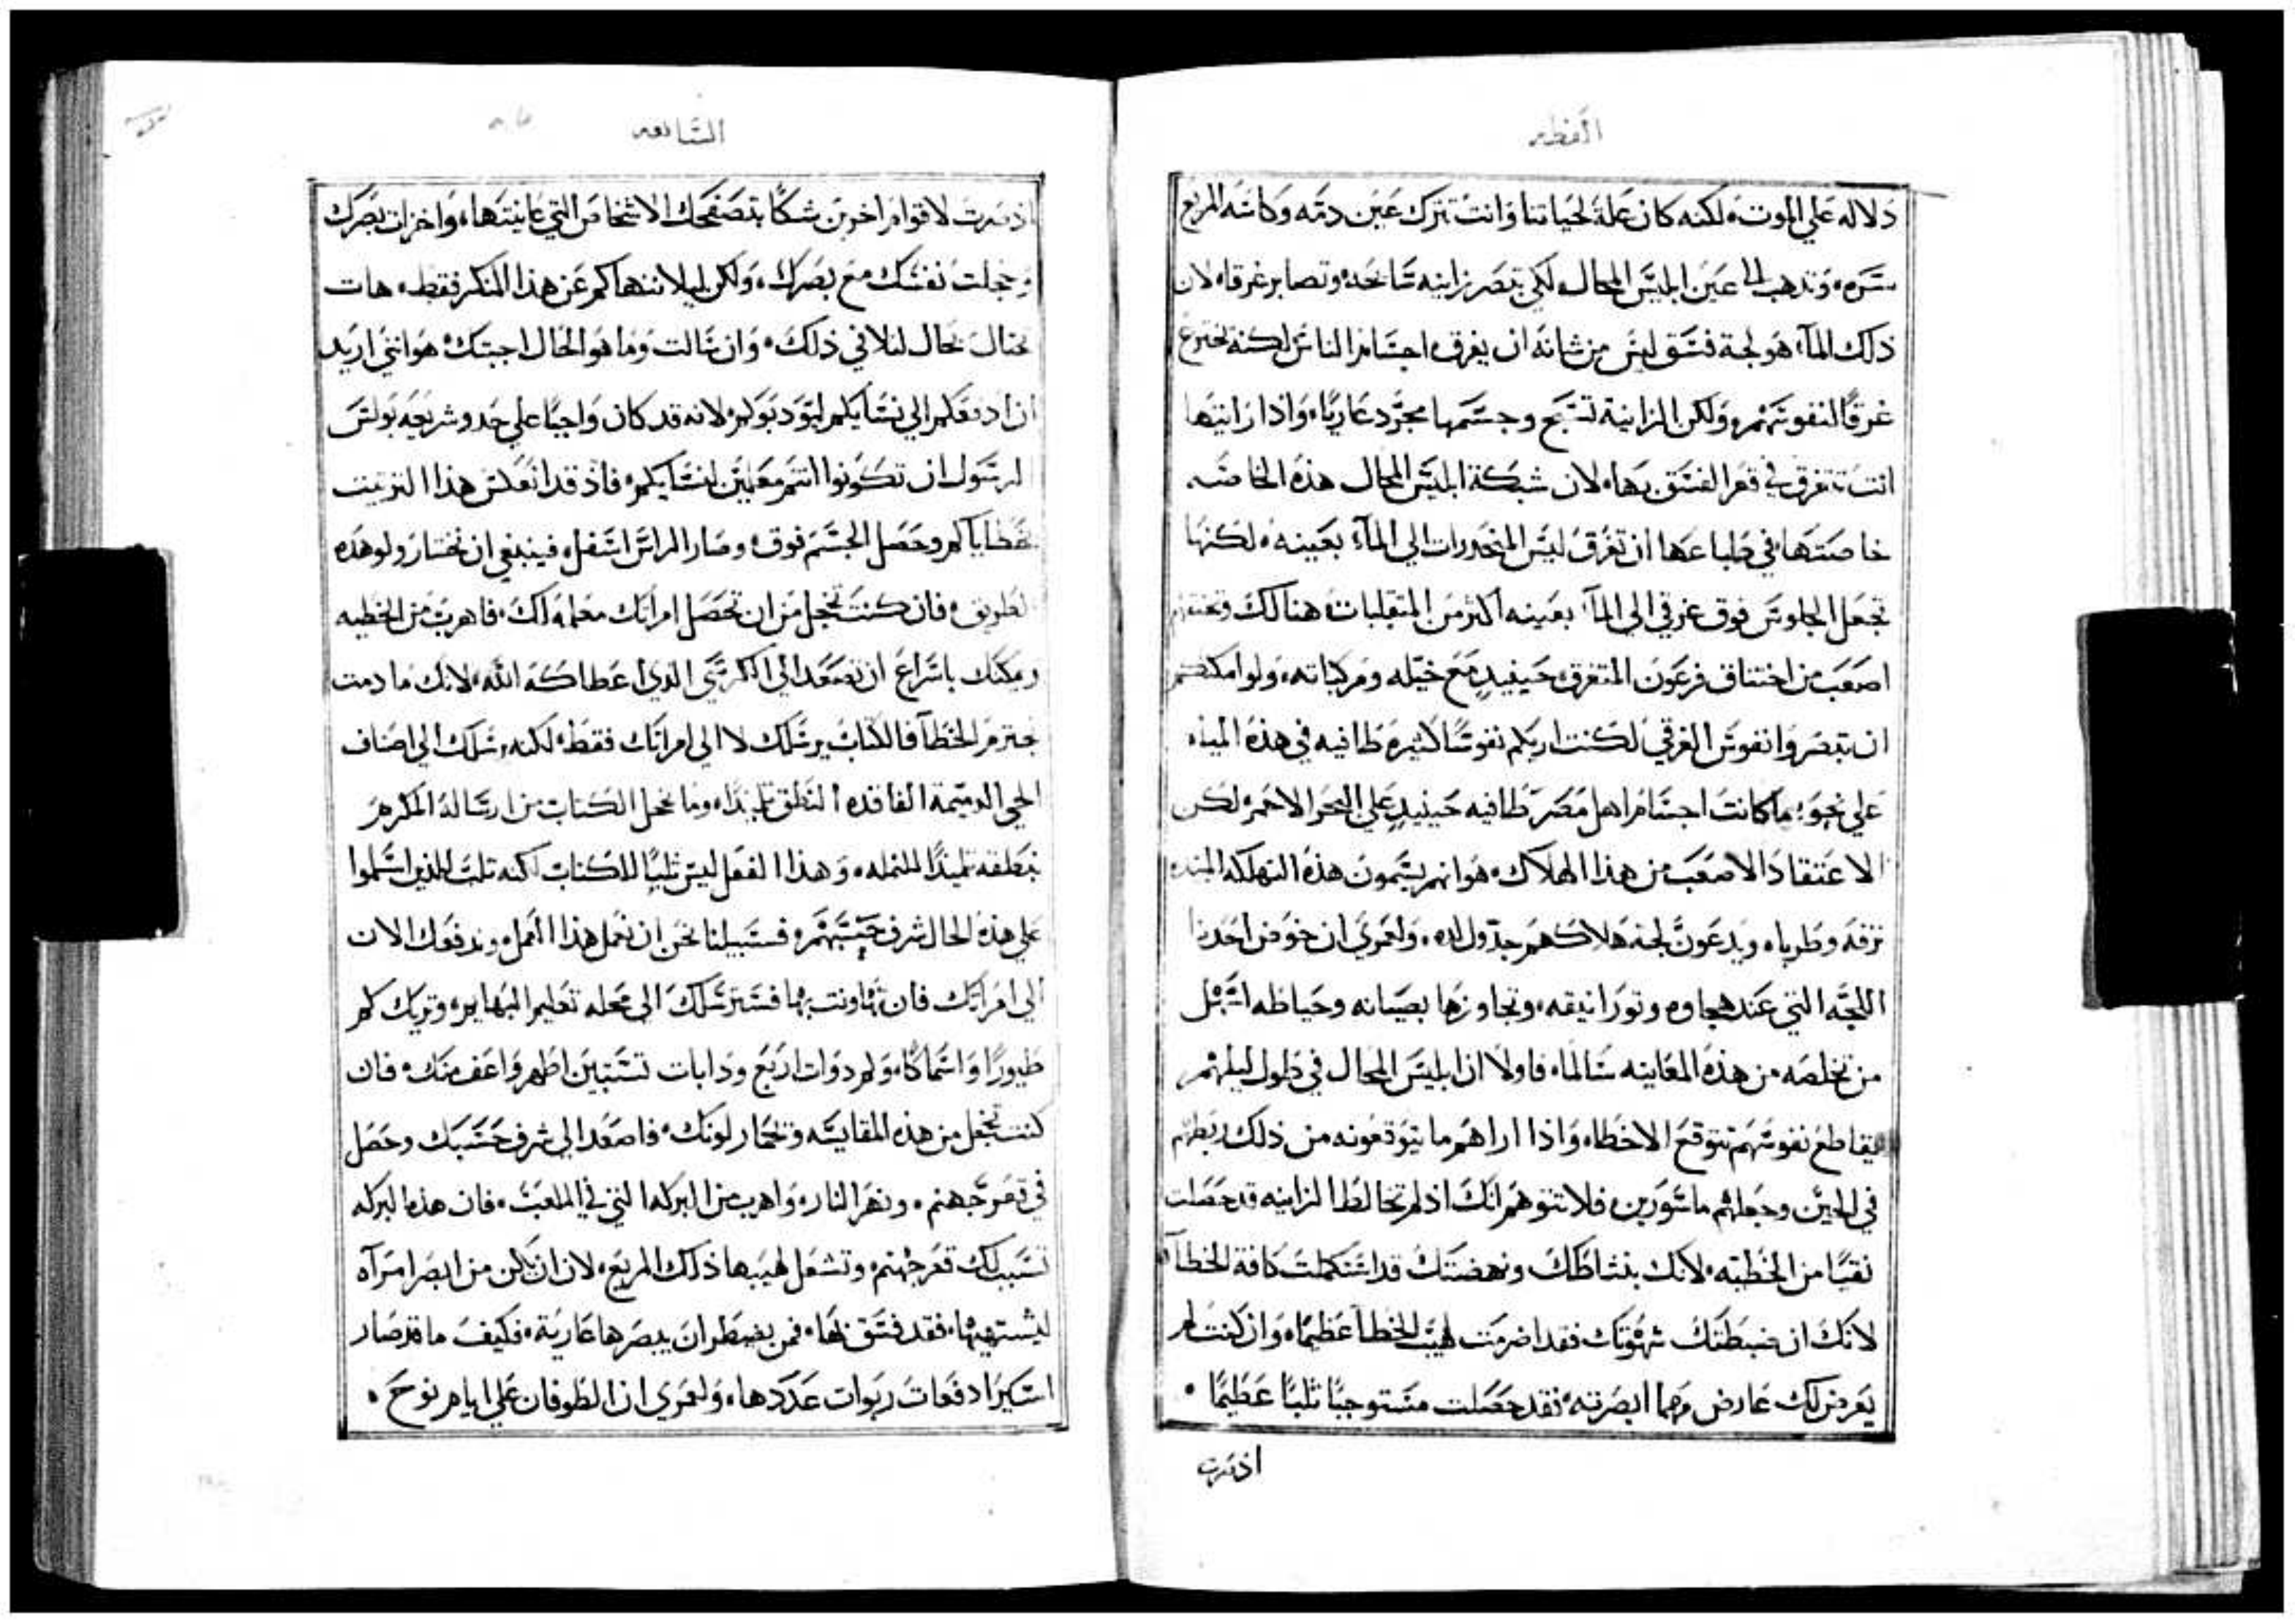 العظه
دلاله علي الموت، لكنه كان علة لحياتنا وانت تترك عين دمه وكاسه المريع
سره، وتذهب الى عين ابليس المحال، لكي تبصر زانيه سابحه، وتصابر غرقا، لان
ذلك المآء هو لجة فسق ليس من شانه ان يغرق اجسام الناس لكنه يخترع
غرقًا لنفوسهم، ولكن الزانية تسبح وجسمها مجرد عاريًا، واذا رايتها
انت تتغرق في قعر الفسق بها، لان شبكة ابليس المحال هذه الخاصه
خاصتها في طباعها ان تغرق ليس المنحدرات الي المآء بعينه، لكنها
تجعل الجلوس فوق غرقي الي المآ بعينه اكثر من المتقلبات هنالك وتخنقهم
اصعب من اختناق فرعون المتغرق حينيدٍ مع خيله ومركباته، ولو امكنكم
ان تبصروا نفوس الغرقي لكنت اريكم نفوسًا كثيره طافيه في هذه المياه
علي نحو ما كانت اجسام اهل مصر طافيه حينيدٍ علي البحر الاحمر، لكن
الاعتقاد الاصعب من هذا الهلاك، هو انهم يسمون هذه التهلكه
نزفه وطربا، ويدعون لجة هلاكهم جدول لده، ولعمري ان خوض احدنا
اللجه التي عند هيجاوه وتورانيقه، وتجاوزها بصيانه وحياطه اسهل
من تخلصه من هذه المعاينه سالما، فاولا ان ابليس المحال في طول ليلهم
يقاطع نفوسهم بتوقع الاخطاء واذا اراهم ما يتوقعونه من ذلك ربطهم
في الحين وجعلهم ماسورين، فلا تتوهم انك اذ لم تخالط الزانيه قد حصلت
نقيًا من الخطيه، لانك بنشاطك ونهضتك قد استكملت كافة الخطآ
لانك ان ضبطتك شهوتك فقد اضرمت لهيب الخطآ عظيمًا، وان كنت لم
يعرض لك عارض مهما ابصرته، فقد حصلت مستوجبًا ثلبًا عظيمًا،
اذ صرت
السابعه
اذ صرت لاقوام اخرين شكًا بتصفحك الاشخاص التي عاينتها، واخزات بصرك
وخجلت نفسك مع بصرك، ولكن ليلا ننهاكم عن هذا المنكر فقط، هات
نحتال بحال لتلافي ذلك، وان سالت وما هو الحال اجبتك هو انني اريد
ان ادفعكم الي نسايكم ليودبوكم، لانه قد كان واجبًا علي حد وشريعه بولس
الرسول ان تكونوا انتم معلمين لنسايكم، فاذ قد انعكس هذا الترتيب
بخطاياكم وحصل الجسم فوق، وصار الراس اسفل، فينبغي ان نختار ولو هذه
الطريق، فان كنت تخجل من ان تحصل امراتك معلمه لك، فاهرب من الخطيه
ويمكنك باسراع ان تصعد الي الكرسي الدي اعطاكه الله، لانك ما دمت
تجترم الخطآ فالكتاب يرسلك لا الي امراتك فقط، لكنه يرسلك الي اصناف
الحي الدميمة الفاقده النطق تلميذًا، وما يخجل الكتاب من ارساله المكرم
بنطقه تلميذًا للنمله، وهذا الفعل ليس ثلبًا للكتاب لكنه ثلب للذين اسلموا
علي هذه الحال شرف حسبهم، فسبيلنا نحن ان نعمل هذا العمل، وندفعك الان
الي امراتك فان تهاونت بها فسنرسلك الي محله تعليم البهايم، ونريك كم
طيورًا واسماكًا، وكم دوات اربع ودابات تستبين اطهر واعف منك، فان
كنت تخجل من هذه المقايسه وتحمار لونك، فاصعد الي شرف حسبك وحصل
في قعر جهنم، ونهر النار، واهرب من البركه التي في الملعب، فان هذه البركه
تسبب لك قعر جهنم، وتشعل لهيبها ذلك المريع، لان ان يكن من ابصر امراه
ليشتهيها، فقد فسق بها، فمن يضطر ان يبصرها عارية، فكيف ما قد صار
اسيرًا دفعات ربوات عددها، ولعمري ان الطوفان علي ايام نوح،